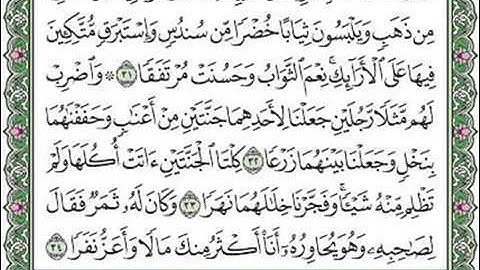 مِن ذَهَبٍ وَيَلْبَسُونَ ثِيَابًا خُضْرًا مِّن سُندُسٍ وَإِسْتَبْرَقٍ مُّتَّكِـِٔينَ
فِيهَا عَلَى ٱلْأَرَآئِكِۚ نِعْمَ ٱلثَّوَابُ وَحَسُنَتْ مُرْتَفَقًا ٣١ ۞ وَٱضْرِبْ
لَهُم مَّثَلًا رَّجُلَيْنِ جَعَلْنَا لِأَحَدِهِمَا جَنَّتَيْنِ مِنْ أَعْنَٰبٍ وَحَفَفْنَٰهُمَا
بِنَخْلٍ وَجَعَلْنَا بَيْنَهُمَا زَرْعًا ٣٢ كِلْتَا ٱلْجَنَّتَيْنِ ءَاتَتْ أُكُلَهَا وَلَمْ
تَظْلِم مِّنْهُ شَيْـًٔاۚ وَفَجَّرْنَا خِلَٰلَهُمَا نَهَرًا ٣٣ وَكَانَ لَهُۥ ثَمَرٌ فَقَالَ
لِصَٰحِبِهِۦ وَهُوَ يُحَاوِرُهُۥٓ أَنَا۠ أَكْثَرُ مِنكَ مَالًا وَأَعَزُّ نَفَرًا ٣٤